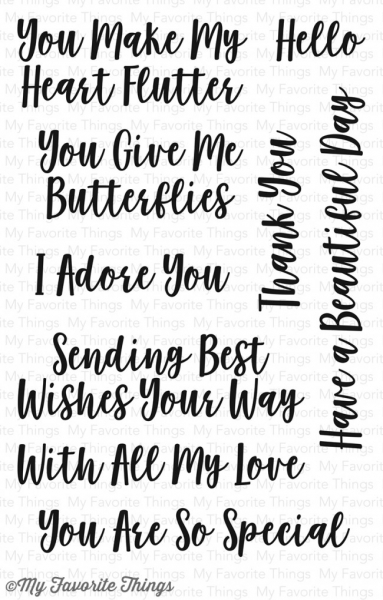 You Make My
Heart Flutter
Hello
You Give Me
Butterflies
Thank You
Have a Beautiful Day
I Adore You
Sending Best
Wishes Your Way
With All My Love
You Are So Special
©My Favorite Things